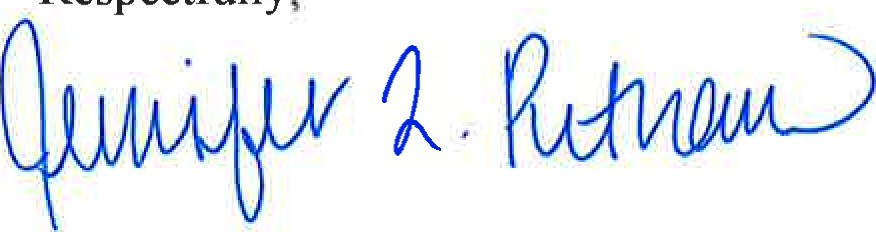 Respectfully,
Jennifer L. Putnam